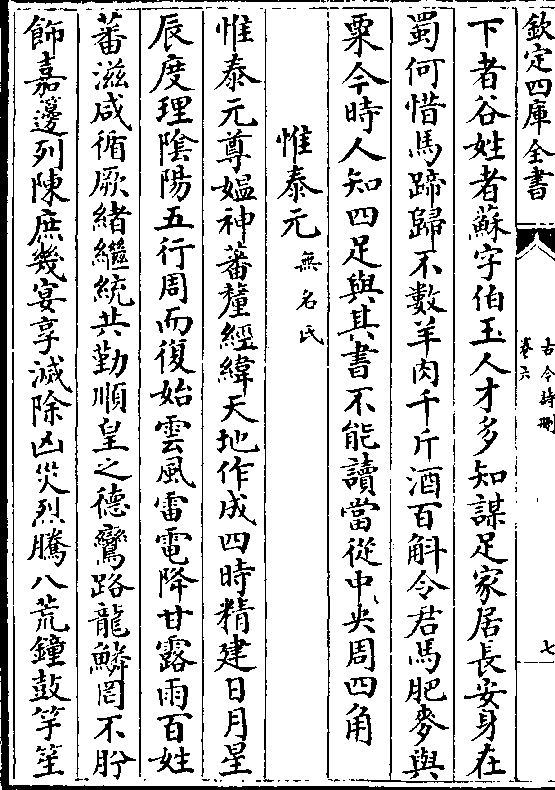 欽定四庫全書
古今詩刪
卷六
七
下者谷姓者蘇字伯玉人才多知謀足家居長安身在
蜀何惜馬蹄歸不數羊肉千斤酒百斛令君馬肥麥與
粟今時人知四足與其書不能讀當從中央周四角
惟泰元無名氏
惟泰元尊媪神蕃釐經緯天地作成四時精建日月星
辰度理陰陽五行周而復始雲風雷電降甘露雨百姓
蕃滋咸循厥緒繼統共勤順皇之德鸞路龍鱗罔不肸
飾嘉籩列陳庶幾宴享滅除凶災烈騰八荒鐘鼓竽笙